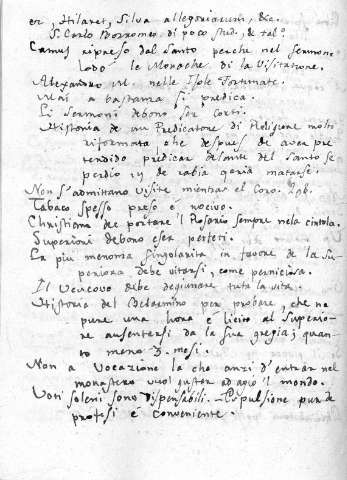 er, Hilaret, Silva allegoriarum, &c.
S. Carlo Borromeo di poco stud. & tal.º
Camus ripreso dal Santo perche nel sermone
lodò le Monache di la Visitatione.
Alexandro M. nelle Isole Fortunate.
Mai a bastanza si predica.
Li Sermoni debono ser corti.
Historia de un Predicatore di Religione molto
riformata che despues de aver pre
tendido predicar delante del Santo se
perdio y de rabia queria matarse.
Non s'admittano visite mientras el Coro. 296.
Tabaco spesso preso è nocivo.
Christiana dee portare il Rosario sempre nela cintola.
Superiori debono eser perfeti.
La piu menoma singolarita in favore de la Su
periora debe vitarsi, come perniciosa.
Il Vescovo debe degiunare tuta la vita.
Historia del Belarmino per probare, che ne
pure una hora è licito al Superio
re ausentarsi da la sua gregia; quan
to meno 3. mesi.
Non a Vocazione la che anzi d'entrar nel
monastero vuol gustar ad agio il mondo.
Voti soleni sono dispensabili. Expulsione pur de
profesi è conveniente.